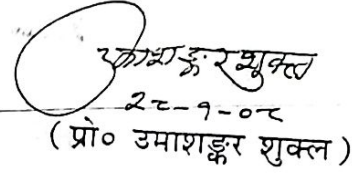 उमाशङ्कर शुक्ल
२८-१-०८
( प्रो० उमाशङ्कर शुक्ल )